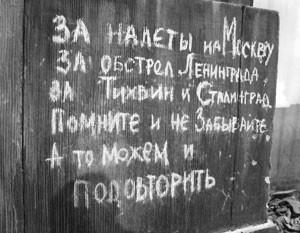 За налеты на Москву
За обстрел Ленинграда
За Тихвин и Сталинград
Помните и не Забывайте
А то можем и
подовторить